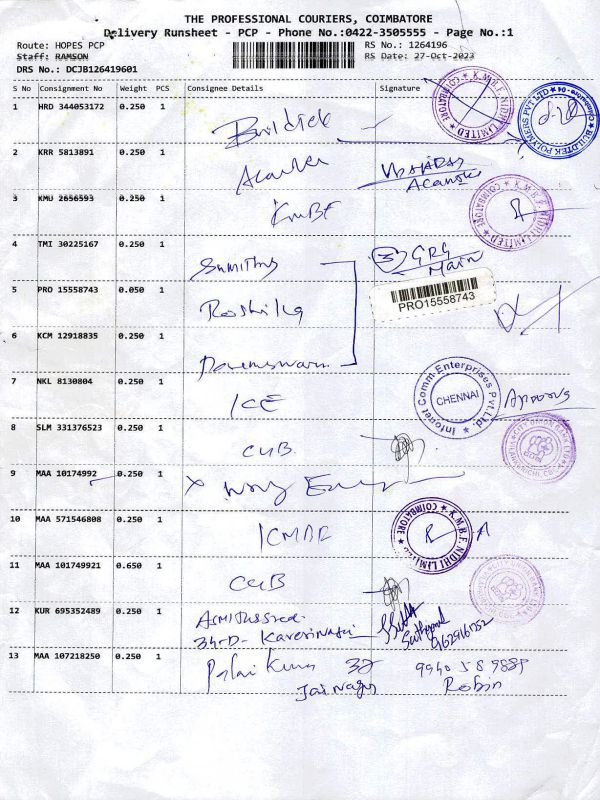 THE PROFESSIONAL COURIERS, COIMBATORE
Delivery Runsheet - PCP - Phone No.:0422-3505555 - Page No.:1
Route: HOPES PCP RS No.: 1264196
Staff: RAMSON RS Date: 27-Oct-2023
DRS No.: DCJB126419601
S No Consignment No Weight PCS Consignee Details Signature
1 HRD 344053172 0.250 1 Buildtek
K.M.B.F. NIDHI LIMITED ★ COIMBATORE ★
BUILDTEK POLYMERS PVT LTD ★ Coimbatore - 04 ★
2 KRR 5813891 0.250 1
3 KMU 2656593 0.250 1 KMBF
K.M.B.F. NIDHI LIMITED ★ COIMBATORE ★
4 TMI 30225167 0.250 1 Sumithra 3 GRG
Main
5 PRO 15558743 0.050 1 Roshika
PRO15558743
6 KCM 12918835 0.250 1
7 NKL 8130804 0.250 1 ICE
Infonet Comm Enterprises Pvt. Ltd. ★ CHENNAI
8 SLM 331376523 0.250 1 CUB
9 MAA 10174992 0.250 1
10 MAA 571546808 0.250 1
K.M.B.F. NIDHI LIMITED ★ COIMBATORE ★
11 MAA 101749921 0.650 1 CUB
12 KUR 695352489 0.250 1
34-D-
13 MAA 107218250 0.250 1 32
Jainagar Robin